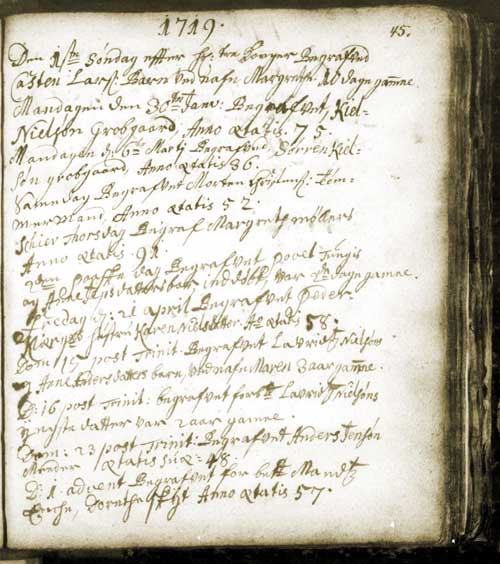 1719.
45.
Den 1ste Søndag effter hh: tre Konger Begrafved
Casten Lars: Barn ved nafn Margrete. 16 dage gamle.
Mandagen den 30te Janv: Begrafvet Kiel-
Nielsøn Grobgaard, Anno ætatis. 75.
Mandagen d: 6te Martj Begrafved Sørren Kiel-
søn grobgaard, Anno ætatis 36.
Samme dag Begrafvet Morten Tøm-
mermand. Anno ætatis 52.
Schier Thorsdag Begraf Margreth møllers
Anno ætatis. 91.
2den Paaske dag Begrafvet Povel Jungis
og Anne barn, var dage gamle.
Fredag d: 21 april Begrafvet Peder
hustru Karen Nielsdatter. Ao ætatis 58.
Dom: 15 post Trinit: Begrafvet Lavridtz Nielsøn
og Anne Anders datters barn, ved nafn Maren 3 aar gamle.
D: 16 post Trinit: begrafvet Lavridtz Nielsøns
yngste datter var 2 aar gamle.
Dom: 23 post Trinit: Begrafvet Anders Jensøn
Mønder ætatis suæ = 48.
D: 1. advent Begrafvet for Mandtz
Enche, Dorothe Anno ætatis 57.